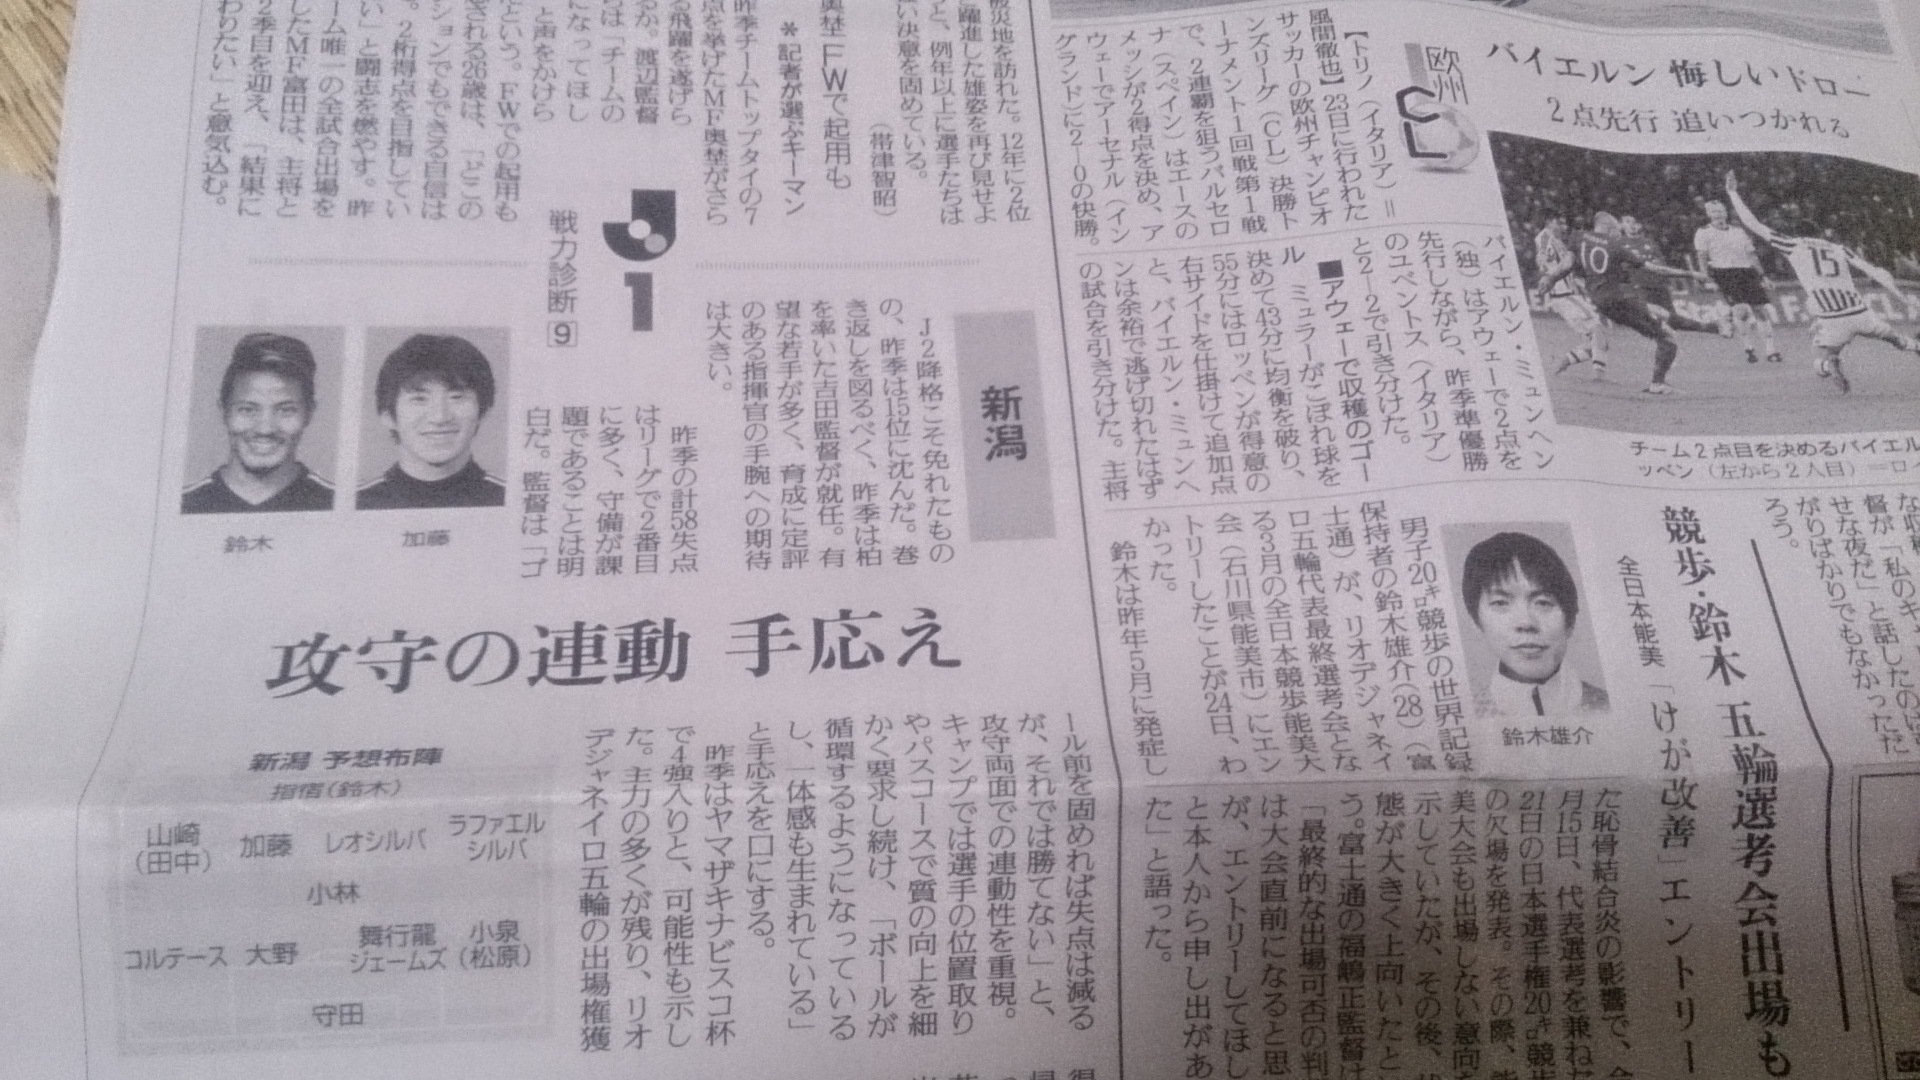 バイエルン 悔しいドロー
2点先行 追いつかれる
欧州
CL
【トリノ(イタリア)=
風間徹也】23日に行われた
サッカーの欧州チャンピオ
ンズリーグ(CL)決勝ト
ーナメント1回戦第1戦
で、2連覇を狙うバルセロ
ナ(スペイン)はエースの
メッシが2得点を決め、ア
ウェーでアーセナル(イン
グランド)に2―0の快勝。
バイエルン・ミュンヘン
(独)はアウェーで2点を
先行しながら、昨季準優勝
のユベントス(イタリア)
と2―2で引き分けた。
■アウェーで収穫のゴー
ル ミュラーがこぼれ球を
決めて43分に均衡を破り、
55分にはロッベンが得意の
右サイドを仕掛けて追加点
と、バイエルン・ミュンヘ
ンは余裕で逃げ切れたはず
の試合を引き分けた。主将
10
15
チーム2点目を決めるバイエル
ッベン(左から2人目)=ロイ
督が「私のキ
せな夜だ」と話したのは
がりばかりでもなかっただ
ろう。
競歩・鈴木 五輪選考会出場も
全日本能美 「けが改善」エントリー
鈴木雄介
男子20㌔競歩の世界記録
保持者の鈴木雄介(28)(富
士通)が、リオデジャネイ
ロ五輪代表最終選考会とな
る3月の全日本競歩能美大
会(石川県能美市)にエン
トリーしたことが24日、わ
かった。
鈴木は昨年5月に発症し
た恥骨結合炎の影響で、
月15日、代表選考を兼ねた
21日の日本選手権20㌔競歩
の欠場を発表。その際、能
美大会も出場しない意向を
示していたが、その後、状
態が大きく上向いたとい
う。富士通の福嶋正監督は
「最終的な出場可否の判
は大会直前になると思
が、エントリーしてほし
と本人から申し出があ
た」と語った。
被災地を訪れた。12年に2位
躍進した雄姿を再び見せよ
うと、例年以上に選手たちは
い決意を固めている。
(帯津智昭)
奥埜 FWで起用も
*記者が選ぶキーマン
昨季チームトップタイの7
点を挙げたMF奥埜がさら
る飛躍を遂げら
るか。渡辺監督
らは「チームの
になってほし
と声をかけら
という。FWでの起用も
される26歳は、「どこの
ションでもできる自信は
。2桁得点を目指してい
い」と闘志を燃やす。昨
ーム唯一の全試合出場を
したMF富田は、主将と
2季目を迎え、「結果に
わりたい」と意気込む。
J1
戦力診断 9
新潟
J2降格こそ免れたもの
の、昨季は15位に沈んだ。巻
き返しを図るべく、昨季は柏
を率いた吉田監督が就任。有
望な若手が多く、育成に定評
のある指揮官の手腕への期待
は大きい。
昨季の計58失点
はリーグで2番目
に多く、守備が課
題であることは明
白だ。監督は「ゴ
鈴木
加藤
攻守の連動 手応え
ール前を固めれば失点は減る
が、それでは勝てない」と、
攻守両面での連動性を重視。
キャンプでは選手の位置取り
やパスコースで質の向上を細
かく要求し続け、「ボールが
循環するようになっている
し、一体感も生まれている」
と手応えを口にする。
昨季はヤマザキナビスコ杯
で4強入りと、可能性も示し
た。主力の多くが残り、リオ
デジャネイロ五輪の出場権獲
新潟 予想布陣
指宿(鈴木)
山崎 (田中) 加藤 レオシルバ ラファエルシルバ
小林
コルテース 大野 舞行龍ジェームズ 小泉 (松原)
守田